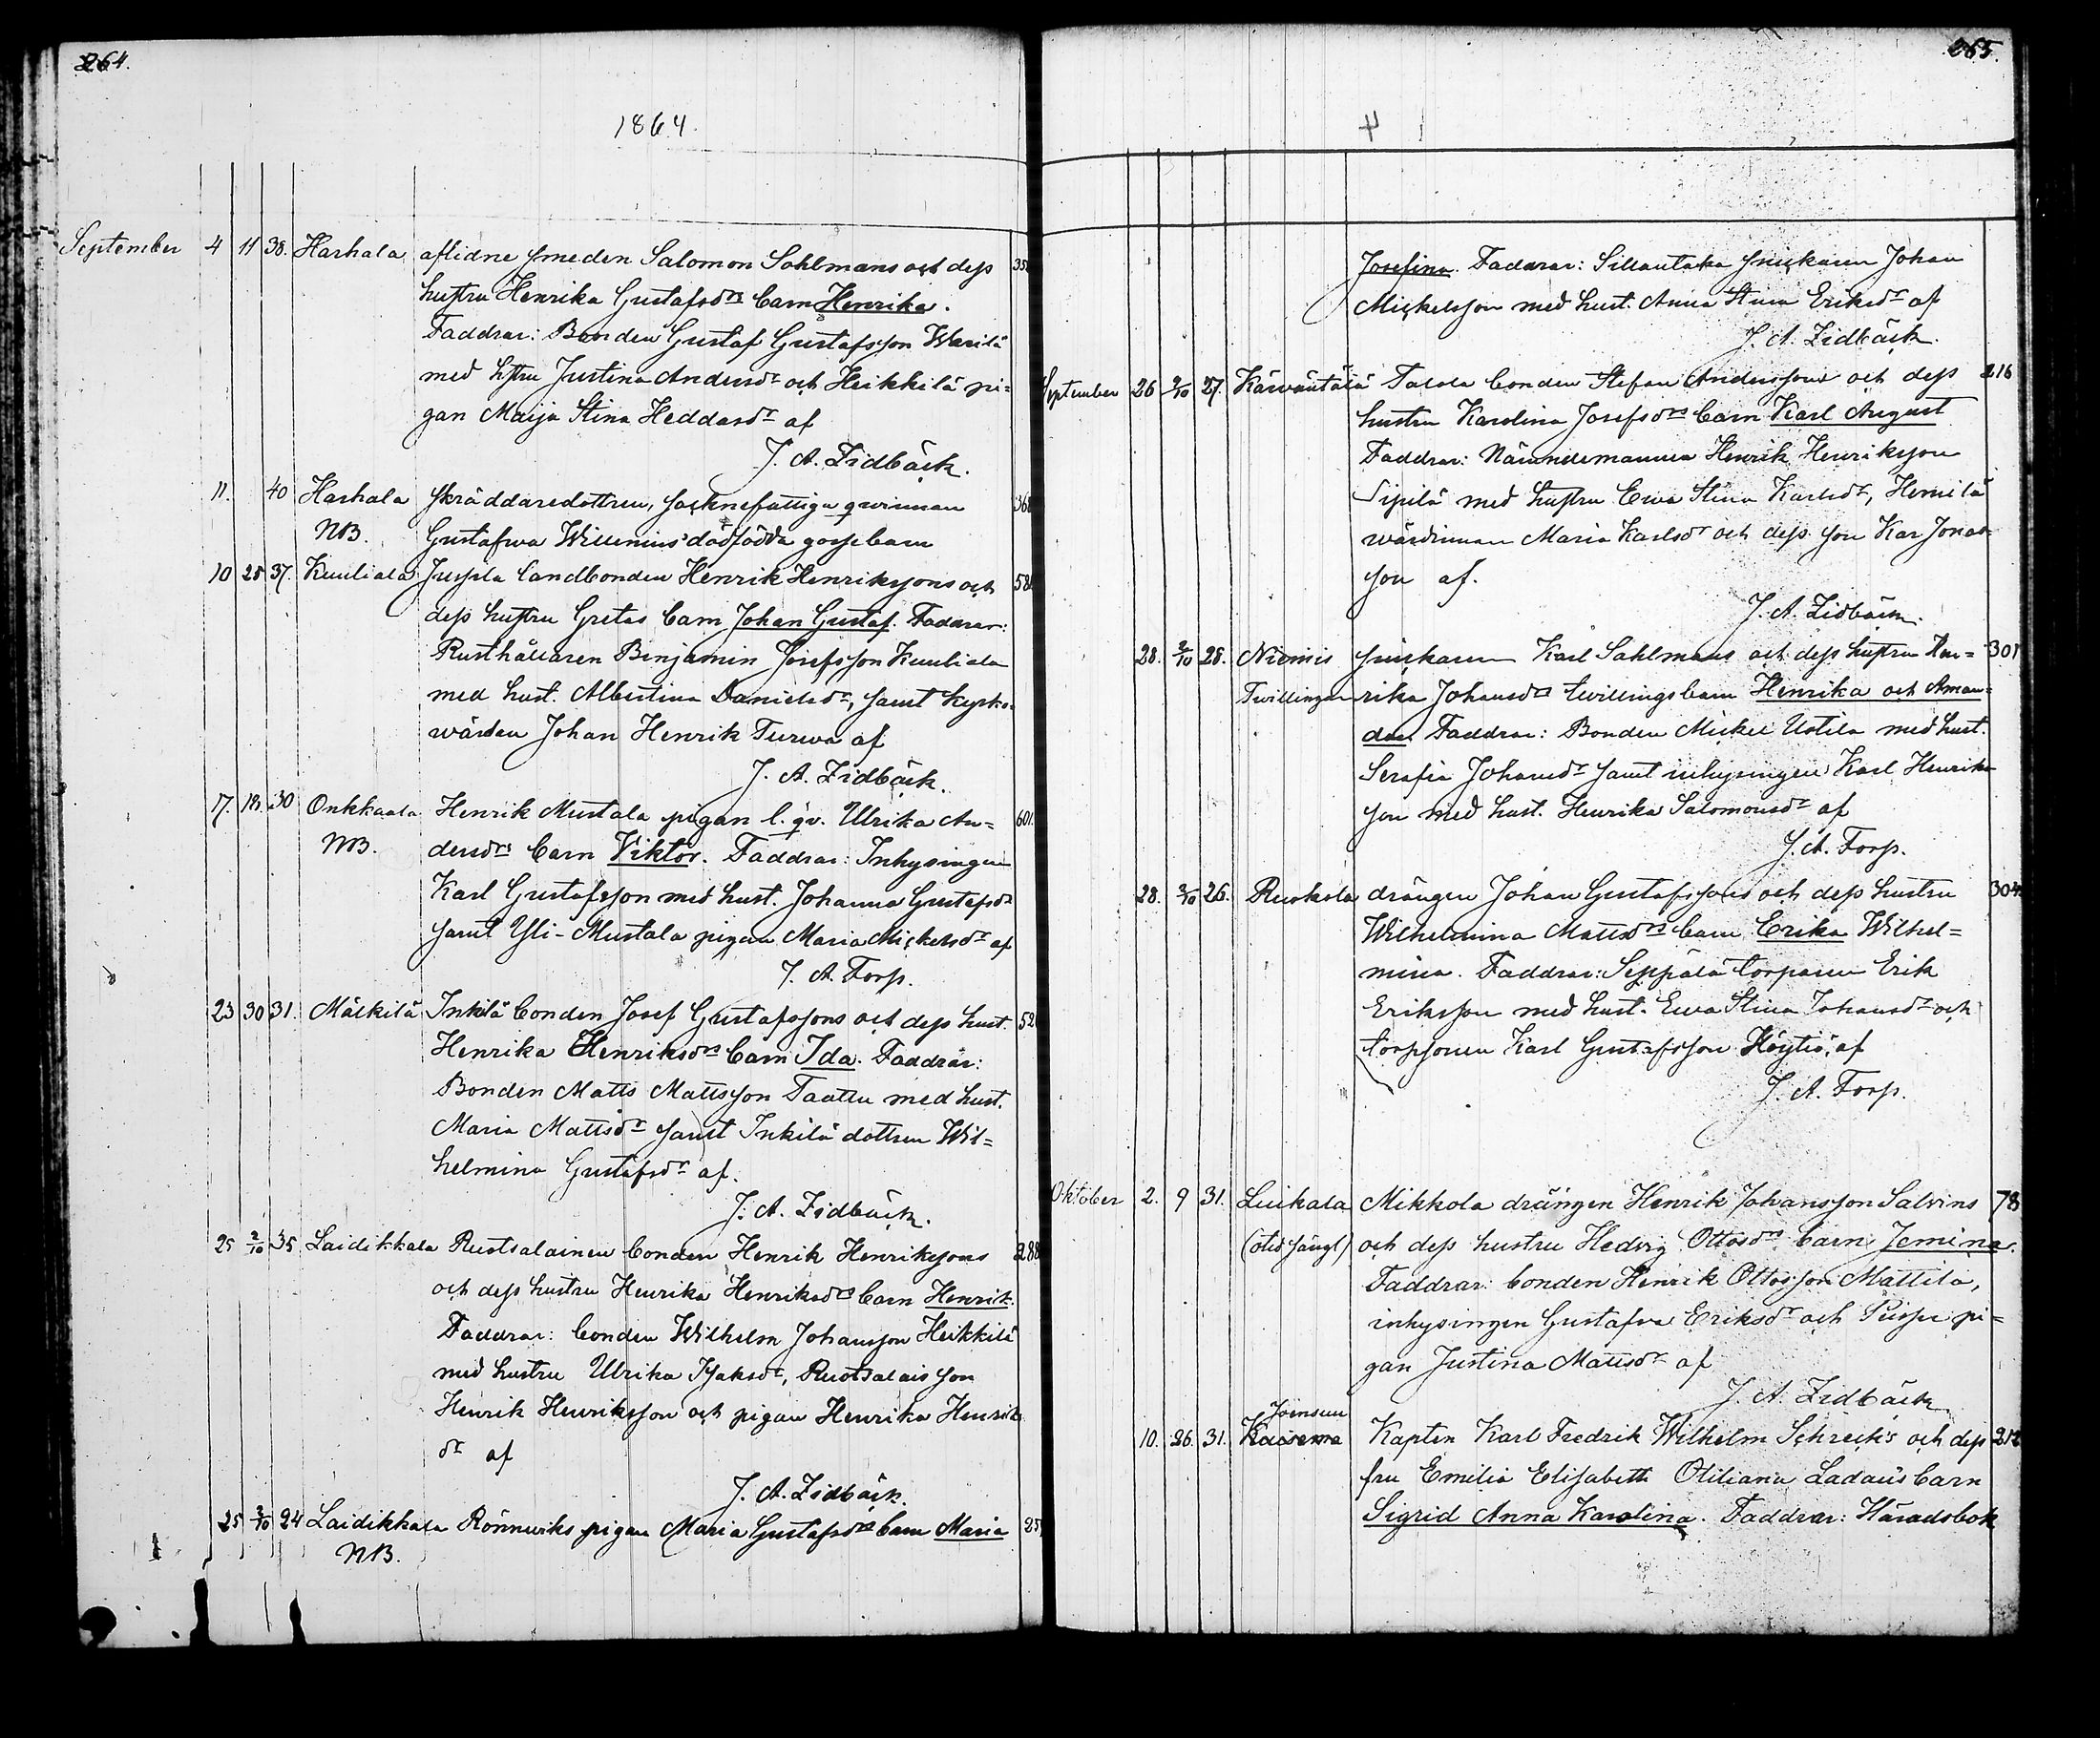 264.
1864.
September 4 11 38. Harhala aflidne smeden Salomon Sohlmans och dess 35
hustru Henrika Gustafsdrs barn Henrika.
Faddrar: Bonden Gustaf Gustafsson Warilä
med hstru Justina Andersdr och Heikkilä pi=
gan Maija Stina Heddasdr af
J. A. Lidbäck.
11. 40 Harhala skräddaredottren, socknefattiga qwinnan 36
NB. Gustafwa Willenius' dödfödda gossebarn
10 25 37. Kuuliala Jussila landbonden Henrik Henrikssons och 58
dess hustru Gretas barn Johan Gustaf. Faddrar:
Rusthållaren Benjamin Josefsson Kuuliala
med hust. Albertina Danielsdr, samt kyrko=
wärden Johan Henrik Turwa af
J. A. Lidbäck.
17. 18. 30 Onkkaala Henrik Mustala pigan l. qv. Ulrika An= 601.
NB. dersdrs barn Viktor. Faddrar: Inhysingen
Karl Gustafsson med hust. Johanna Gustafsdr
samt Yli-Mustala pigan Maria Mickelsdr af
J. A. Forss.
23 30 31. Mälkilä Inkilä bonden Josef Gustafssons och dess hust. 52
Henrika Henriksdrs barn Ida. Faddrar:
Bonden Matts Mattsson Taattu med hust.
Maria Mattsdr samt Inkilä dottren Wil=
helmina Gustafsdr af.
J. A. Lidbäck.
25 2/10 35 Laidikkala Ruotsalainen bonden Henrik Henrikssons 288
och dess hustru Henrika Henriksdrs barn Henrik.
Faddrar: bonden Wilhelm Johansson Heikkilä
med hustru Ulrika Isaksdr, Ruotsalais son
Henrik Henriksson och pigan Henrika Henriks
dr af
J. A. Lidbäck.
25 2/10 24 Laidikkala Rönnwiks pigan Maria Gustafsdrs barn Maria 25
NB.
265.
Josefina. Faddrar: Sillantaka snickaren Johan
Mickelsson med hust. Anna Stina Eriksdr af
J. A. Lidbäck.
September 26 2/10 27. Kärwäntälä Talola bonden Stefan Anderssons och dess 216
hustru Karolina Josefsdrs barn Karl August
Faddrar: Nämndemannen Henrik Henriksson
Sipilä med hustru Ewa Stina Karlsdr, Hemilä
wärdinnan Maria Karlsdr och dess son Kar Jonas
son af.
J. A. Lidbäck.
28. 2/10 28. Niemis snickaren Karl Sahlmans och dess hustru Hen= 301
Twillingar rika Johansdrs twillingsbarn Henrika och Aman=
da. Faddrar: Bonden Mickel Uotila med hust.
Serafia Johansdr samt inhysingen Karl Henriks
son med hust. Henrika Salomonsdr af
J. A. Forss.
28. 2/10 26. Ruokola drängen Johan Gustafssons och dess hustru 304
Wilhelmina Mattsdrs barn Erika Wilhel=
mina. Faddrar: Seppälä torparen Erik
Eriksson med hust. Ewa Stina Johansdr och
torpsonen Karl Gustafsson Höytiö, af
J. A. Forss.
Oktober 2. 9 31. Luikala Mikkola drängen Henrik Johansson Salvins 78
och dess hustru Hedvig Ottosdrs barn Jemina.
Faddrar: bonden Henrik Ottosson Mattila,
inhysingen Gustafva Eriksdr och pi=
gan Justina Mattsdr af
J. A. Lidbäck
Joensuu
10. 26. 31. Kaptin Karl Fredrik Wilhelm Schreck's och dess 212
fru Emilia Elisabeth Otiliana Ladau's barn
Sigrid Anna Karolina. Faddrar: Häradsbok